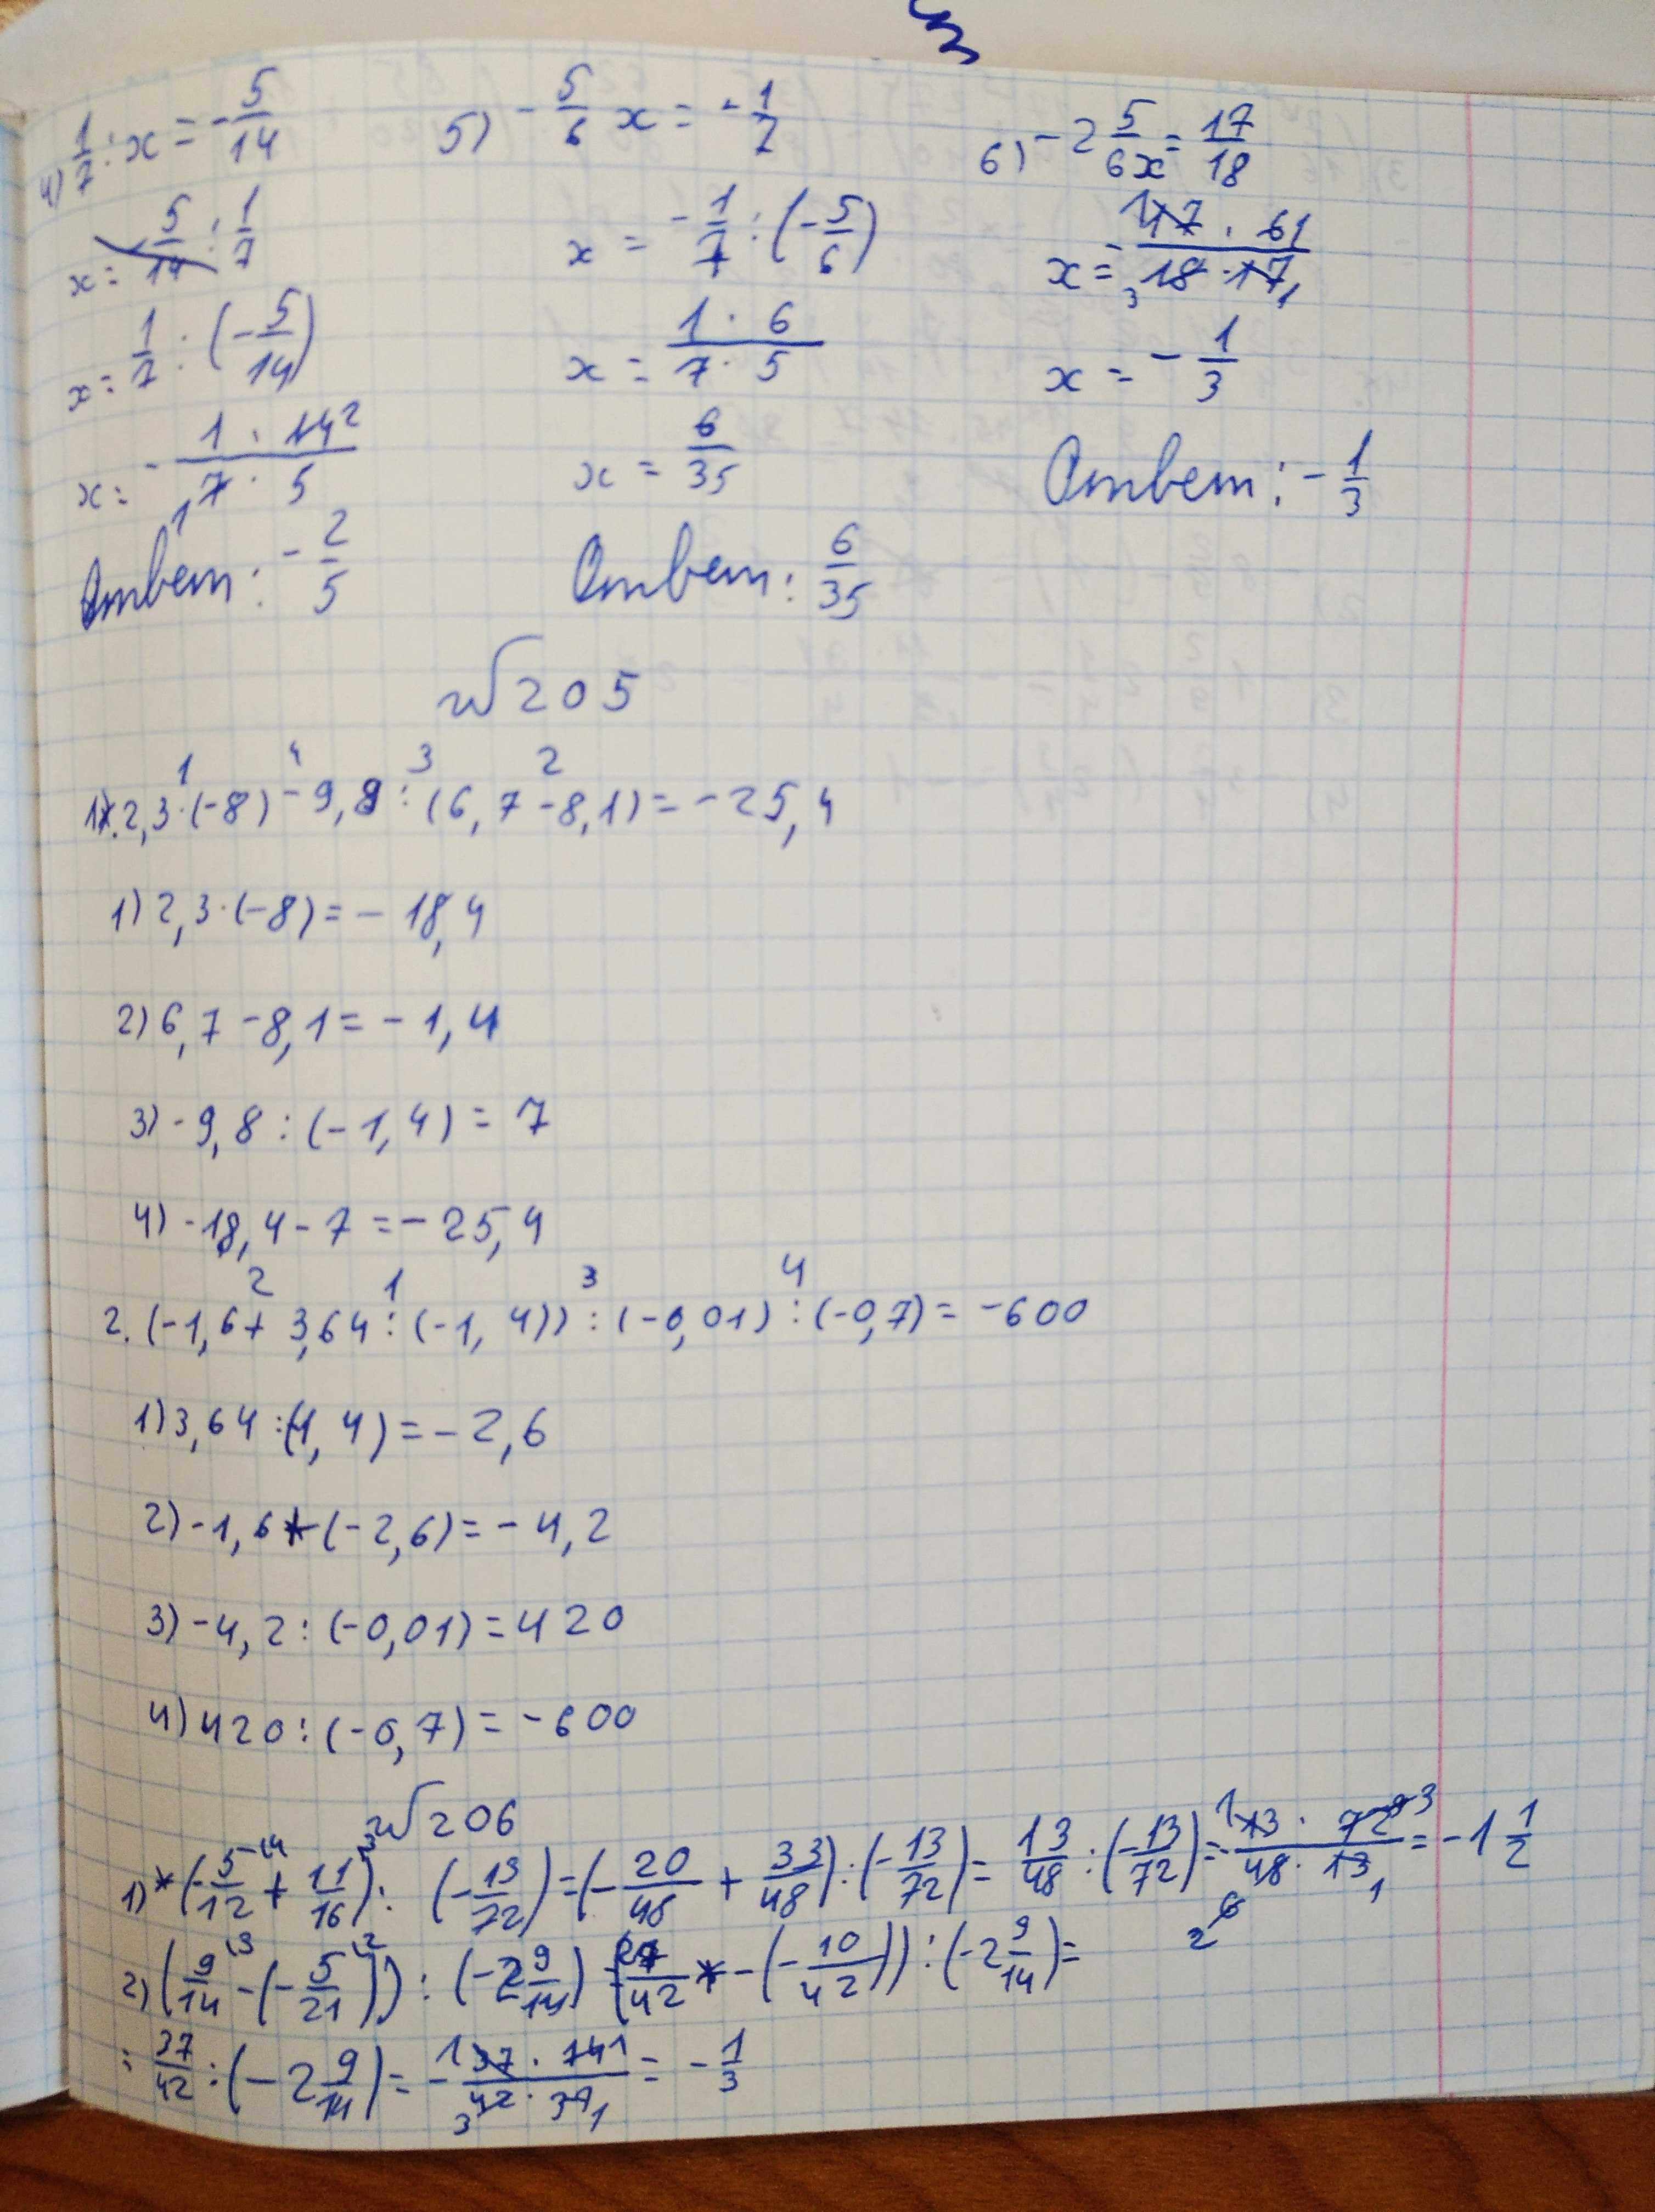 4) 1/7 : x = -5/14
x = 1/7 : (-5/14)
x = - 1 · 14 2 / 1 7 · 5
Ответ: -2/5
5) -5/6 x = -1/7
x = -1/7 : (-5/6)
x = 1 · 6 / 7 · 5
x = 6/35
Ответ: 6/35
6) -2 5/6 x = 17/18
x = - 1 17 · 6 1 / 3 18 · 17 1
x = -1/3
Ответ: -1/3
№205
1 4 3 2
1. 2,3·(-8) - 9,8 : (6,7 - 8,1) = -25,4
1) 2,3·(-8) = -18,4
2) 6,7 - 8,1 = -1,4
3) -9,8 : (-1,4) = 7
4) -18,4 - 7 = -25,4
2 1 3 4
2. (-1,6 + 3,64 : (-1,4)) : (-0,01) : (-0,7) = -600
1) 3,64 : (-1,4) = -2,6
2) -1,6 + (-2,6) = -4,2
3) -4,2 : (-0,01) = 420
4) 420 : (-0,7) = -600
№206
1) (-5/12 \4 + 11/16 \3) : (-13/72) = (-20/48 + 33/48) : (-13/72) = 13/48 : (-13/72) = - 1 13 · 72 9 3 / 48 · 13 1 = -1 1/2
6
2
2) (9/14 \3 - (-5/21 \2)) : (-2 9/14) = (27/42 - (-10/42)) : (-2 9/14) =
= 37/42 : (-2 9/14) = - 1 37 · 14 1 / 3 42 · 37 1 = -1/3